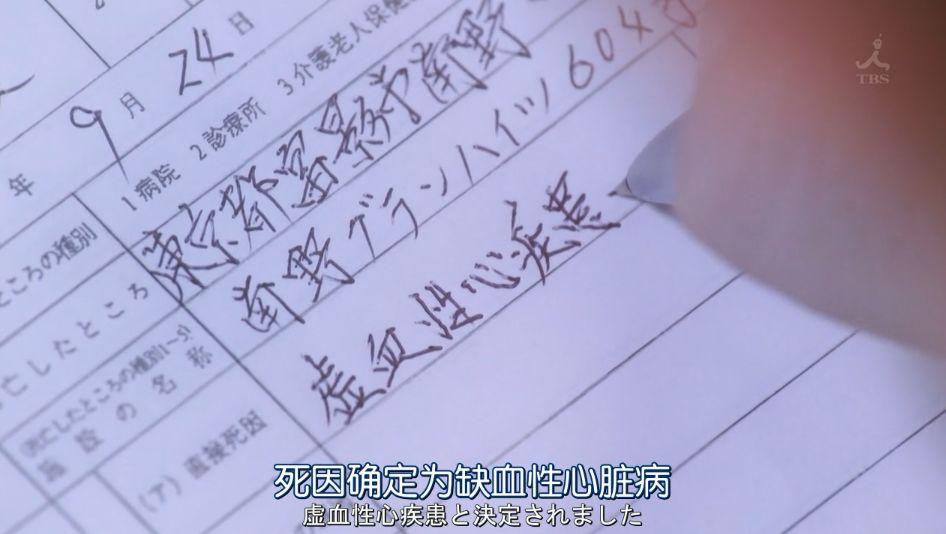 TBS
年 9月 24日
1病院 2診療所 3介護老人保健
ところの種別
東京都富景市南野
亡したところ
南野グランハイツ604
(死亡したところの種別1~5)
施設の名称
虚血性心疾患
(ア)直接死因
死因确定为缺血性心脏病
虚血性心疾患と決定されました